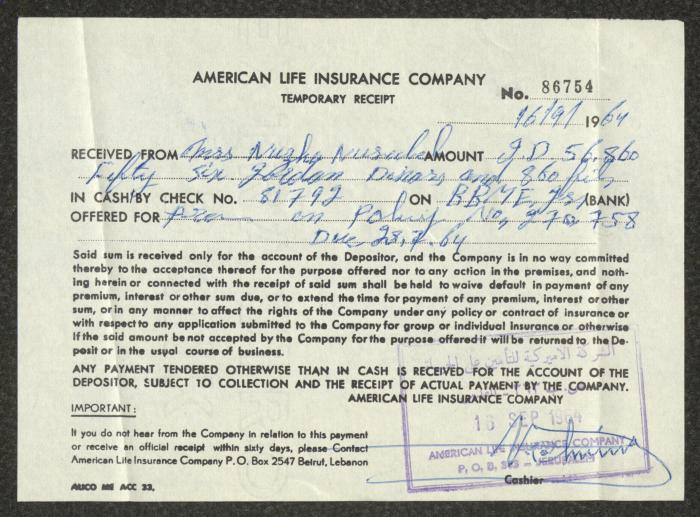 AMERICAN LIFE INSURANCE COMPANY
No. 86754
TEMPORARY RECEIPT
16/9/ 1964
RECEIVED FROM Mrs Nuzha Nuseibeh AMOUNT J.D 56.860
Fifty six Jordan Dinars and 860 fils
IN CASH/BY CHECK NO. 81792 ON BBME, Jer (BANK)
OFFERED FOR Prem on Policy No, 270758
Due 28.7.64
Said sum is received only for the account of the Depositor, and the Company is in no way committed
thereby to the acceptance thereof for the purpose offered nor to any action in the premises, and noth-
ing herein or connected with the receipt of said sum shall be held to waive default in payment of any
premium, interest or other sum due, or to extend the time for payment of any premium, interest or other
sum, or in any manner to affect the rights of the Company under any policy or contract of insurance or
with respect to any application submitted to the Company for group or individual Insurance or otherwise
If the said amount be not accepted by the Company for the purpose offered it will be returned to the De-
posit or in the usual course of business.
ANY PAYMENT TENDERED OTHERWISE THAN IN CASH IS RECEIVED FOR THE ACCOUNT OF THE
DEPOSITOR, SUBJECT TO COLLECTION AND THE RECEIPT OF ACTUAL PAYMENT BY THE COMPANY.
AMERICAN LIFE INSURANCE COMPANY
IMPORTANT:
If you do not hear from the Company in relation to this payment
or receive an official receipt within sixty days, please Contact
American Life Insurance Company P.O. Box 2547 Beirut, Lebanon
ALICO ME ACC 33.
الشركة الاميركية للتأمين على الحياة
16 SEP 1964
AMERICAN LIFE INSURANCE COMPANY
P, O, B, – JERUSALEM
Cashier